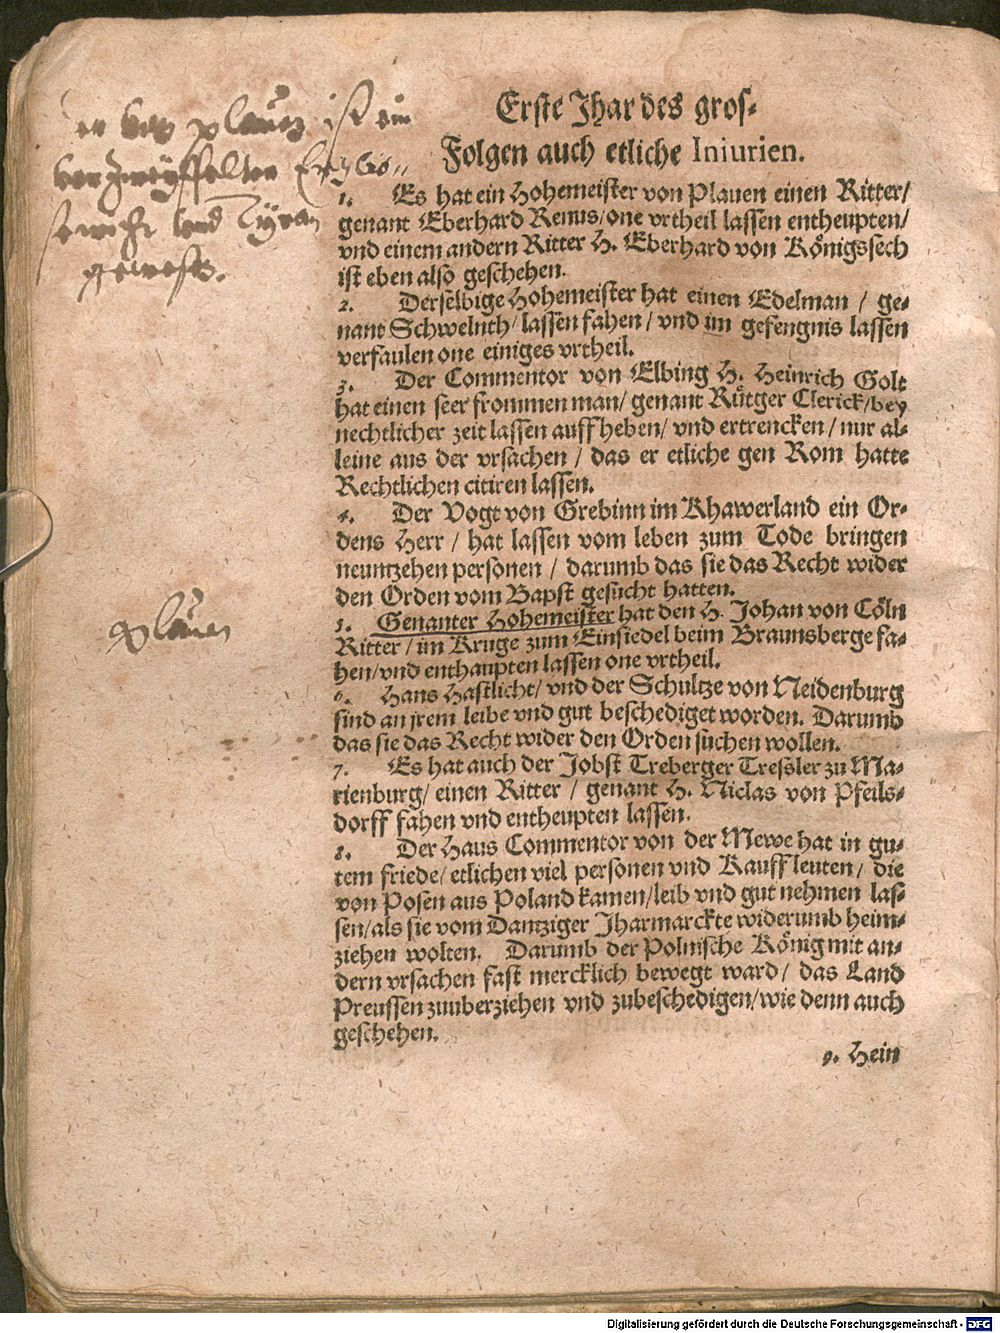 Erste Jhar des gros-
Folgen auch etliche Iniurien.
er von plauen ist ein
verzweyffelter Ertzbö-
sewicht vnd Tyran
gewest.
1. Es hat ein Hohemeister von Plauen einen Ritter/
genant Eberhard Renus/one vrtheil lassen entheupten/
vnd einem andern Ritter H. Eberhard von Königssech
ist eben also geschehen.
2. Derselbige Hohemeister hat einen Edelman / ge-
nant Schwelnth/ lassen fahen / vnd im gefengnis lassen
verfaulen one einiges vrtheil.
3. Der Commentor von Elbing H. Heinrich Golt
hat einen seer frommen man/ genant Rütger Clerick/bey
nechtlicher zeit lassen auffheben/ vnd ertrencken / nur al-
leine aus der vrsachen / das er etliche gen Rom hatte
Rechtlichen citiren lassen.
4. Der Vogt von Grebinn im Khawerland ein Or-
dens Herr / hat lassen vom leben zum Tode bringen
neuntzehen personen / darumb das sie das Recht wider
den Orden vom Bapst gesucht hatten.
plauen
5. Genanter Hohemeister hat den H. Johan von Cöln
Ritter / im Kruge zum Einsiedel beim Braunsberge fa-
hen/vnd enthaupten lassen one vrtheil.
6. Hans Hastlicht/ vnd der Schultze von Neidenburg
sind an jrem leibe vnd gut beschediget worden. Darumb
das sie das Recht wider den Orden suchen wollen.
7. Es hat auch der Jobst Treberger Tressler zu Ma-
rienburg/ einen Ritter / genant H. Niclas von Pfeils-
dorff fahen vnd entheupten lassen.
8. Der Haus Commentor von der Mewe hat in gu-
tem friede/ etlichen viel personen vnd Kauffleuten / die
von Posen aus Poland kamen/leib vnd gut nehmen las-
sen/als sie vom Dantziger Jharmarckte widerumb heim-
ziehen wolten. Darumb der Polnische König mit an-
dern vrsachen fast mercklich bewegt ward / das Land
Preussen zuuberziehen vnd zubeschedigen/wie denn auch
geschehen.
9. Hein
Digitalisierung gefördert durch die Deutsche Forschungsgemeinschaft - DFG